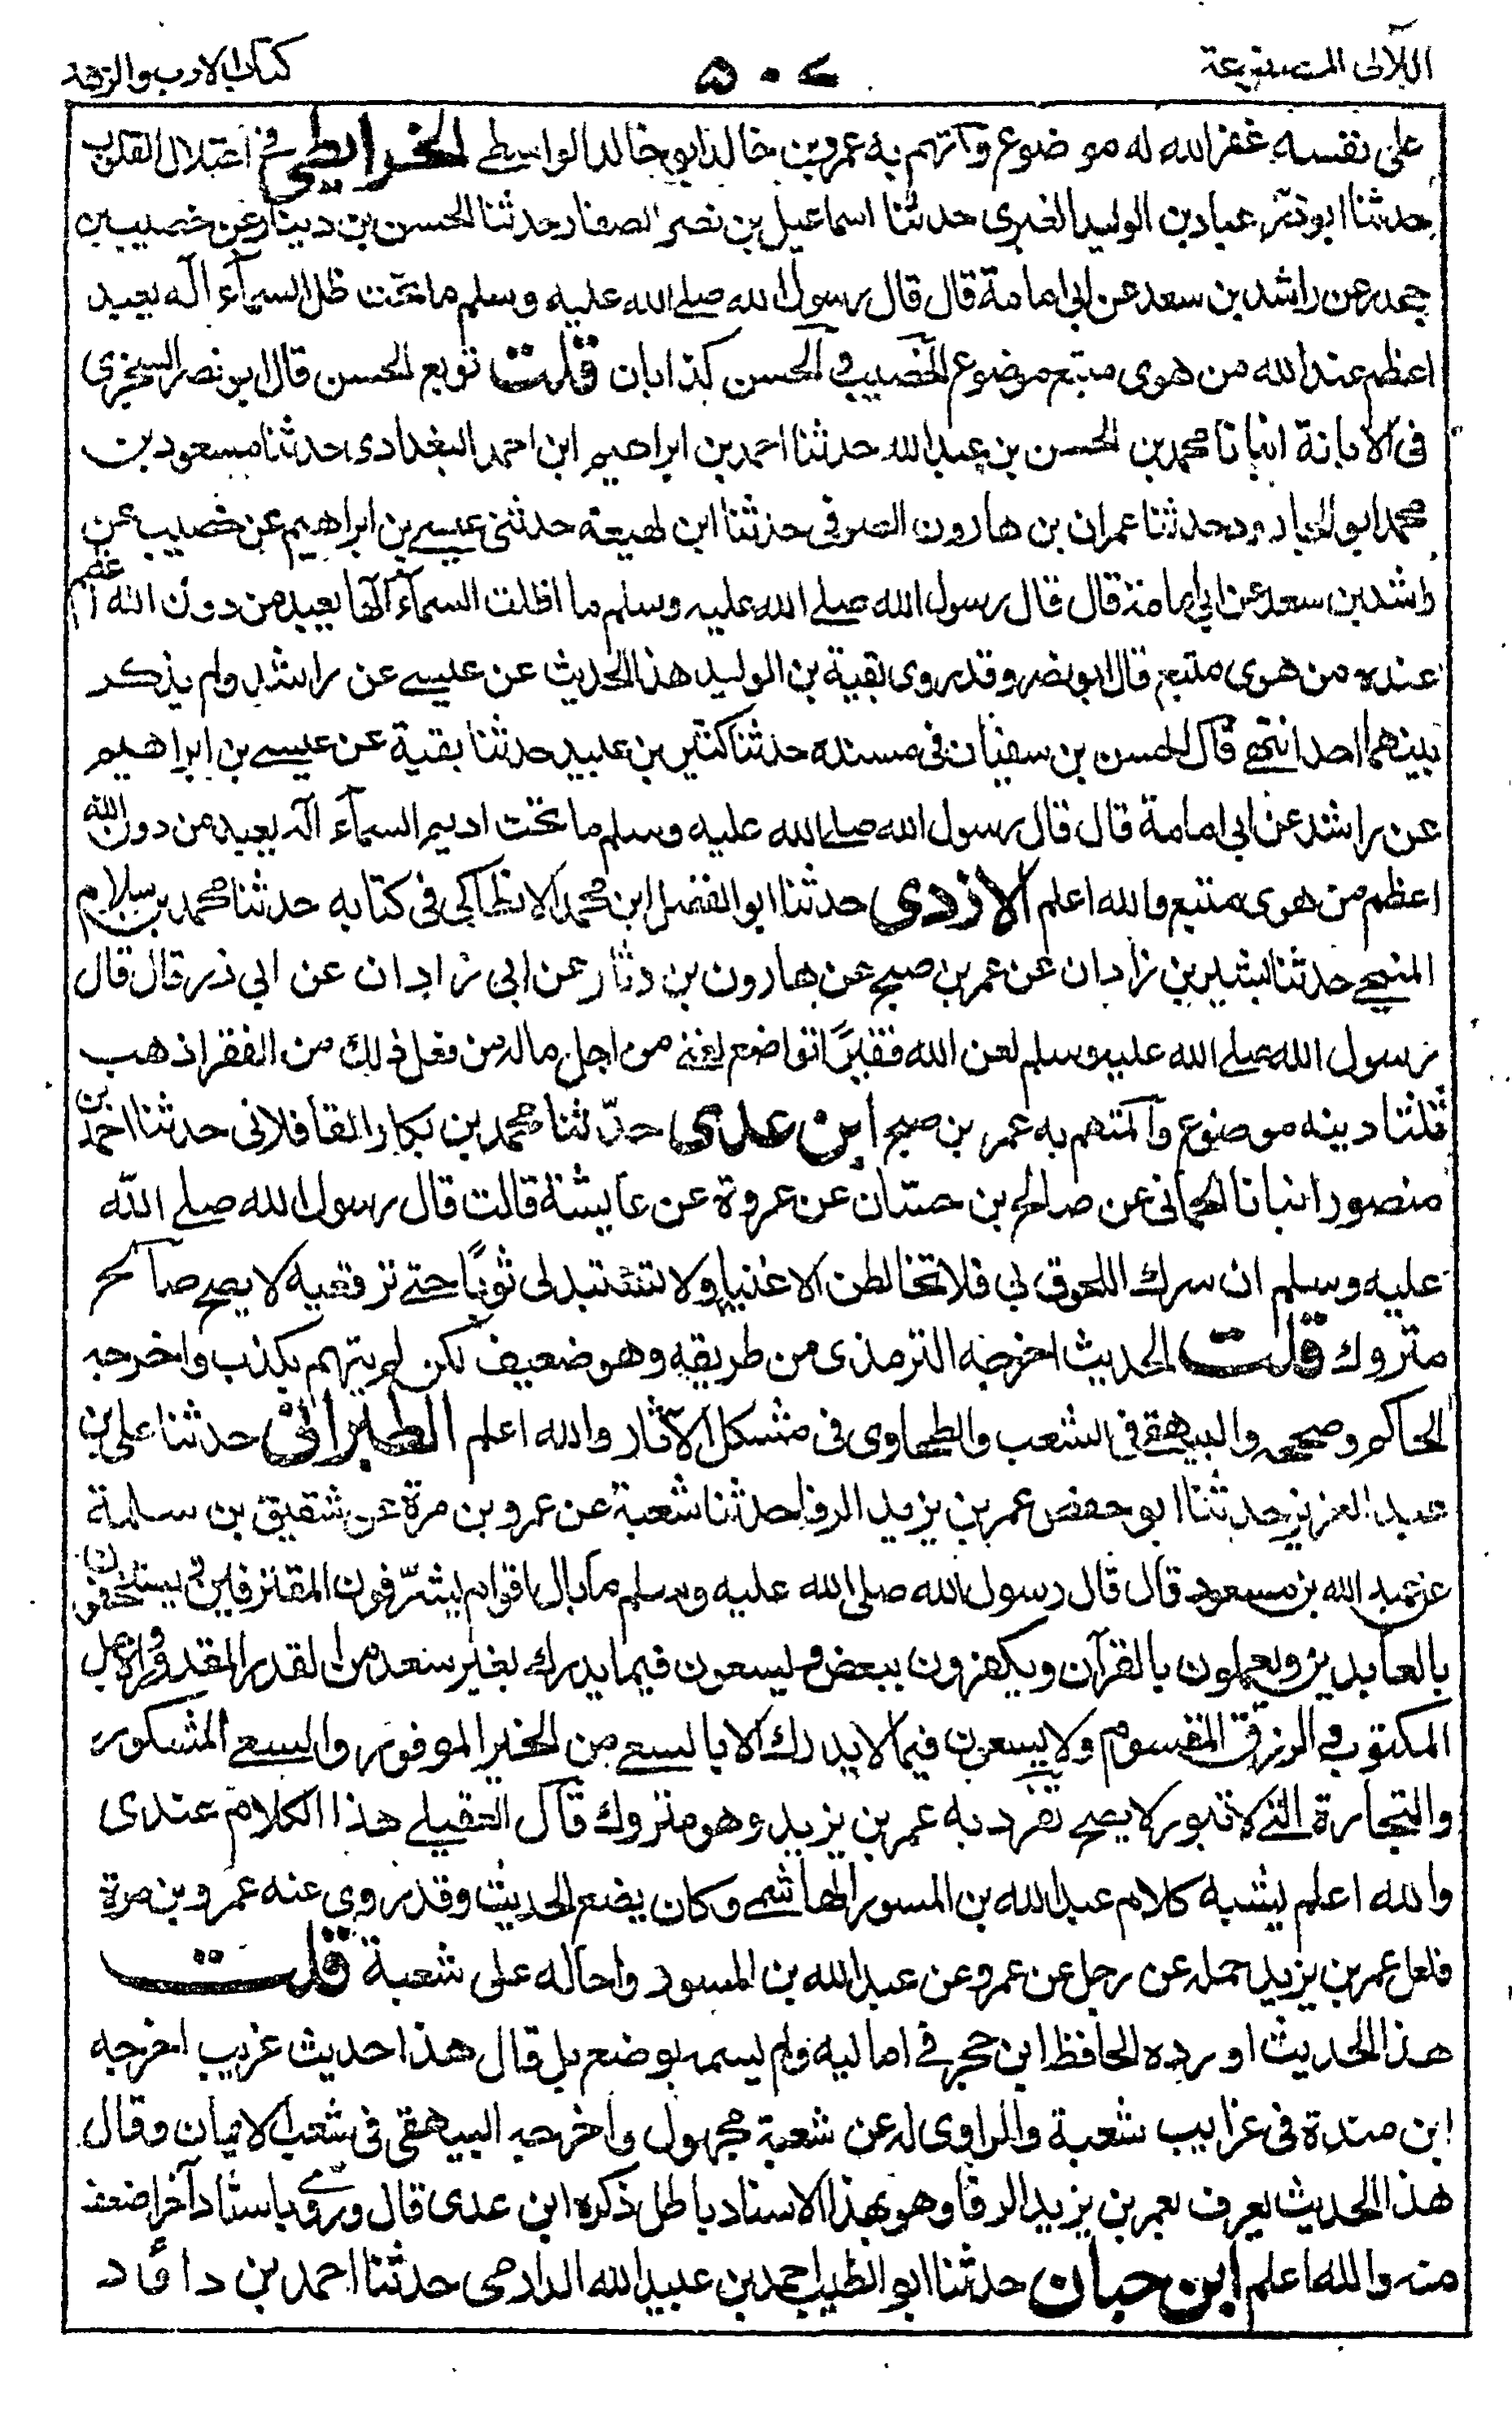 اللآلى المصنوعة
٥٠٧
كتاب الادب والزهد
على نفسه غفر الله له موضوع وآتهم به عمرو بن خالد ابو خالد الواسطے الخرايطي فے اعتلال القلوب
حدثنا ابو ذر عباد بن الوليد الغبرى حدثنا اسماعيل بن نصر الصفار حدثنا الحسن بن دينار عن خصيب بن
جحدر عن راشد بن سعد عن ابى امامة قال قال رسول الله صلے الله عليه وسلم ما تحت ظل السمآء آله يعبد
اعظم عند الله من هوى متبع موضوع الخصيب و الحسن كذابان قلت توبع الحسن قال ابو نصر السجزى
فى الابانة انبانا محمد بن الحسن بن عبد الله حدثنا احمد بن ابراهيم ابن احمد البغدادى حدثنا مسعود بن
محمد ابو الجارود حدثنا عمران بن هارون الصوفى حدثنا ابن لهيعة حدثنى عيسے بن ابراهيم عن خصيب عن
راشد بن سعد عن ابى امامة قال قال رسول الله صلے الله عليه وسلم ما اظلت السمآء آلها يعبد من دون الله اعظم
عنده من هوى متبع قال ابو نصر و قد روى بقية بن الوليد هذا الحديث عن عيسے عن راشد ولم يذكر
بينهما احدا انتهے قال الحسن بن سفيان فى مسنده حدثنا كثير بن عبيد حدثنا بقية عن عيسے بن ابراهيم
عن راشد عن ابى امامة قال قال رسول الله صلے الله عليه وسلم ما تحت اديم السمآء آله يعبد من دون الله
اعظم من هوى متبع والله اعلم الازدى حدثنا ابو الفضل ابن محمد الانطاكى فى كتابه حدثنا محمد بن سلام
المنبجے حدثنا بشير بن زاذان عن عمر بن صبح عن هارون بن دثار عن ابى زاذان عن ابى ذر قال قال
رسول الله صلے الله عليه وسلم لعن الله فقيرًا تواضع لغنے من اجل ماله من فعل ذلك من الفقرا ذهب
ثلثا دينه موضوع وآلمتهم به عمر بن صبح ابن عدى حدّثنا محمد بن بكار القافلانى حدثنا احمد بن
منصور انبانا الحمانى عن صالح بن حسّان عن عروة عن عايشة قالت قال رسول الله صلے الله
عليه وسلم ان سرك اللحوق بى فلا تخالطن الاغنيا ولا تستبدلى ثوبًا حتے ترقعيه لا يصح صالح
متروك قلت الحديث اخرجه الترمذى من طريقه وهو ضعيف لكن لم يتهم بكذب واخرجه
الحاكم وصححه والبيهقے فى الشعب والطحاوى فى مشكل الآثار والله اعلم الطبرانى حدثنا على بن
عبد العزيز حدثنا ابو حفص عمر بن يزيد الرفا حدثنا شعبة عن عمرو بن مرة عن شقيق بن سلمة
عن عبد الله بن مسعود قال قال رسول الله صلى الله عليه وسلم ما بال اقوام يشرّفون المقترفين و يستخفون
بالعابدين ويعملون بالقرآن ويكفرون ببعض و يسعون فيما يدرك بغير سعد من القدر المقدور والاجل
المكتوب و الرزق المقسوم ولا يسعون فيما لا يدرك الا بالسعے من الخير الموفور والسعے المشكور
والتجارة التے لا تبور لا يصح تفرد به عمر بن يزيد وهو متروك قال العقيلے هذا الكلام عندى
والله اعلم يشبه كلام عبد الله بن المسور الهاشمے وكان يضع الحديث وقد روى عنه عمرو بن مرة
فلعل عمر بن يزيد حمله عن رجل عن عمرو عن عبد الله بن المسور واحاله على شعبة قلت
هذا الحديث اورده الحافظ ابن حجر فے اماليه ولم يسمه بوضع بل قال هذا حديث غريب اخرجه
ابن مندة فى غرايب شعبة والراوى له عن شعبة مجهول واخرجه البيهقى فى شعب الايمان وقال
هذا الحديث يعرف بعمر بن يزيد الرفا وهو بهذا الاسناد باطل ذكره ابن عدى قال وروى باسناد آخر اضعف
منه والله اعلم ابن حبان حدثنا ابو الطيب احمد بن عبيد الله الدارمى حدثنا احمد بن داؤد